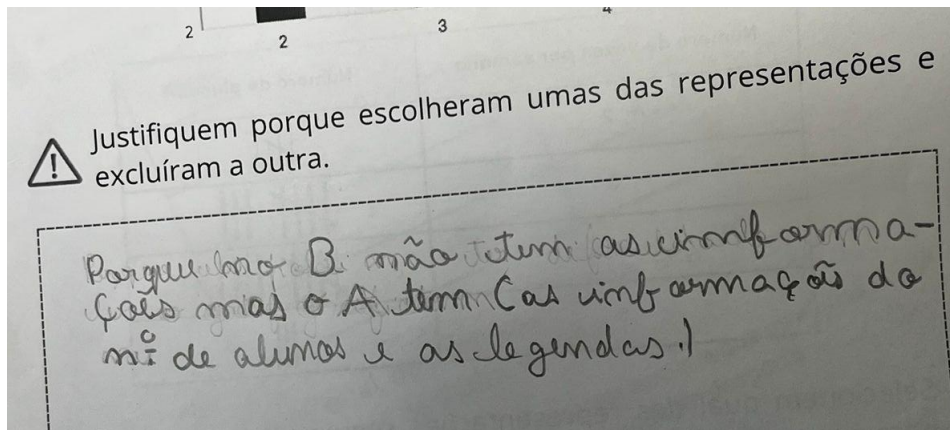 2
2
3
4
Justifiquem porque escolheram umas das representações e
excluíram a outra.
Porque no B não tem as imforma-
çoẽs mas o A tem (as imformaçoẽs do
nº de alunos e as legendas.)